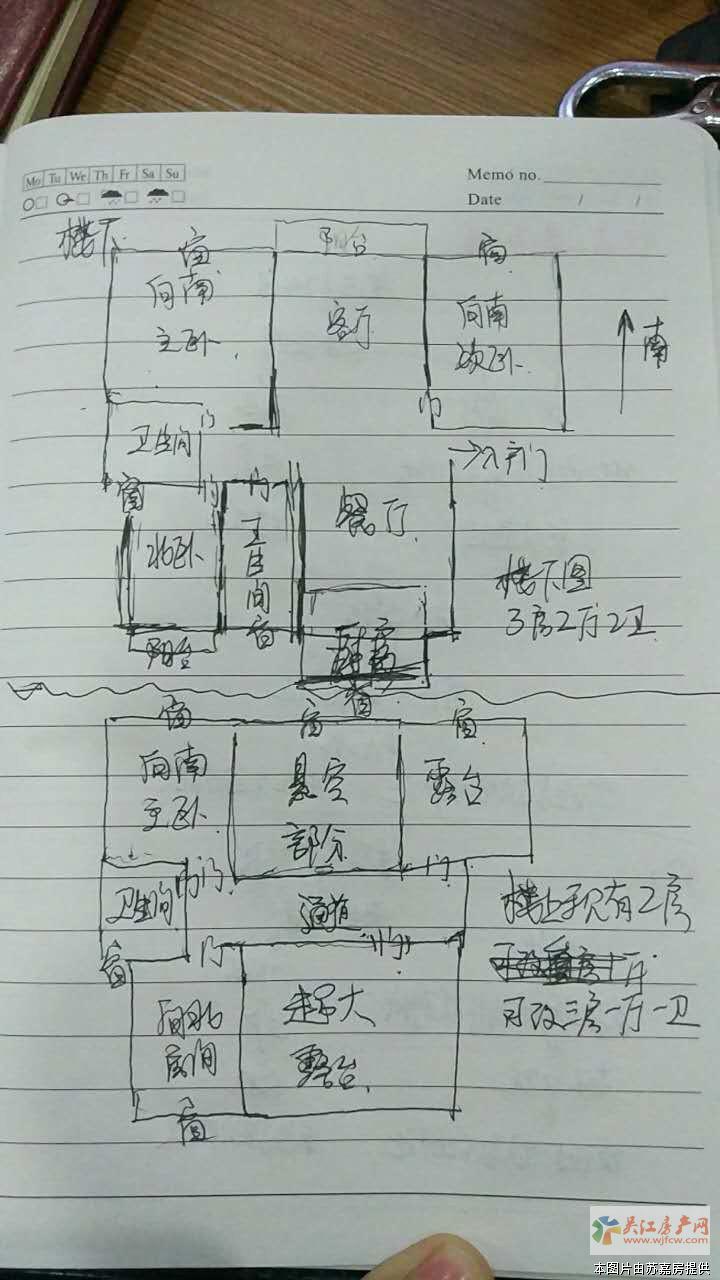 Mo Tu We Th Fr Sa Su
Memo no.
Date / /
楼下
窗
平台
窗
向南
主卧
客厅
向南
次卧
南
门
门
卫生间
→入户门
窗
门
门
北卧
卫生间
窗
餐厅
阳台
厨房
窗
楼下图
3房2厅2卫
窗
窗
窗
向南
主卧
悬空
部分
露台
卫生间
门
门
门
过道
窗
门
门
楼上手只有2房
可改三房一厅一卫
向北
房间
超大
露台
窗
吴江房产网
www.wjfcw.com
本图片由苏嘉房提供